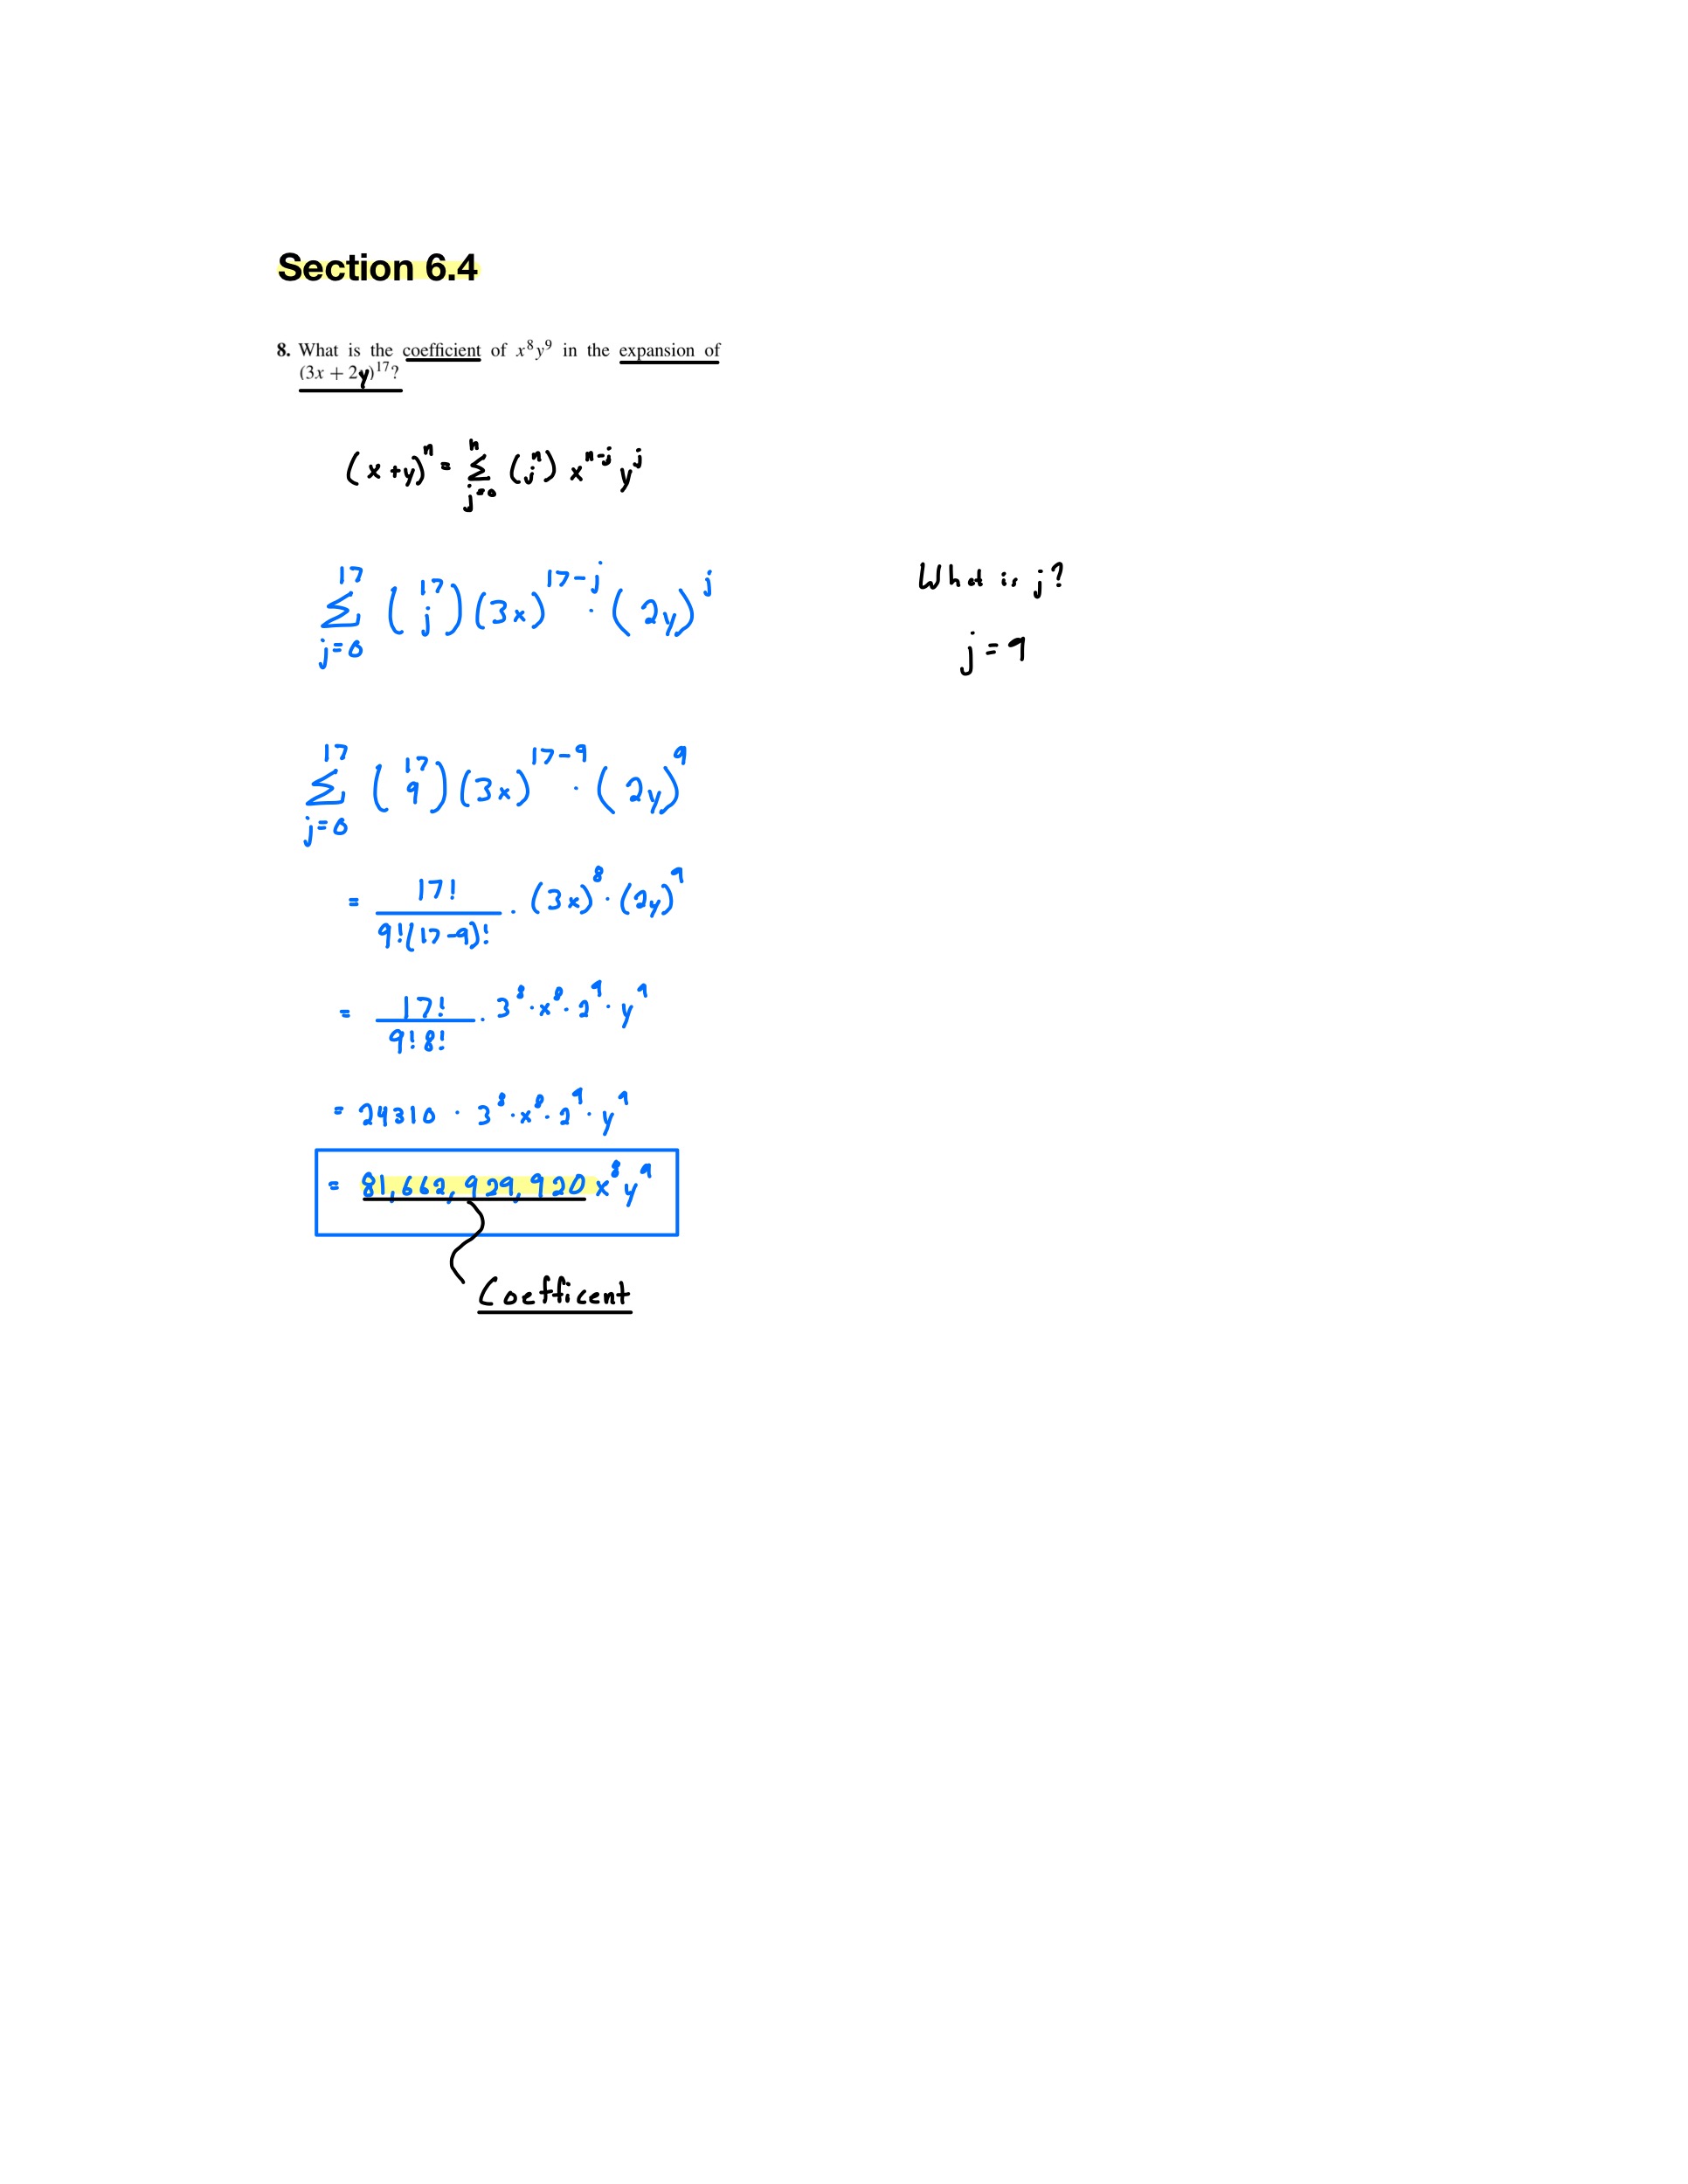 Section 6.4
8. What is the coefficient of x⁸y⁹ in the expansion of
(3x + 2y)¹⁷?
(x+y)ⁿ = Σ_{j=0}^{n} (n j) x^{n-j} y^j
Σ_{j=0}^{17} (17 j) (3x)^{17-j} · (2y)^j
What is j?
j = 9
Σ_{j=0}^{17} (17 9) (3x)^{17-9} · (2y)^9
= 17! / 9!(17-9)! · (3x)⁸ · (2y)⁹
= 17! / 9!8! · 3⁸ · x⁸ · 2⁹ · y⁹
= 24310 · 3⁸ · x⁸ · 2⁹ · y⁹
= 81,662,929,920 x⁸ y⁹
Coefficent